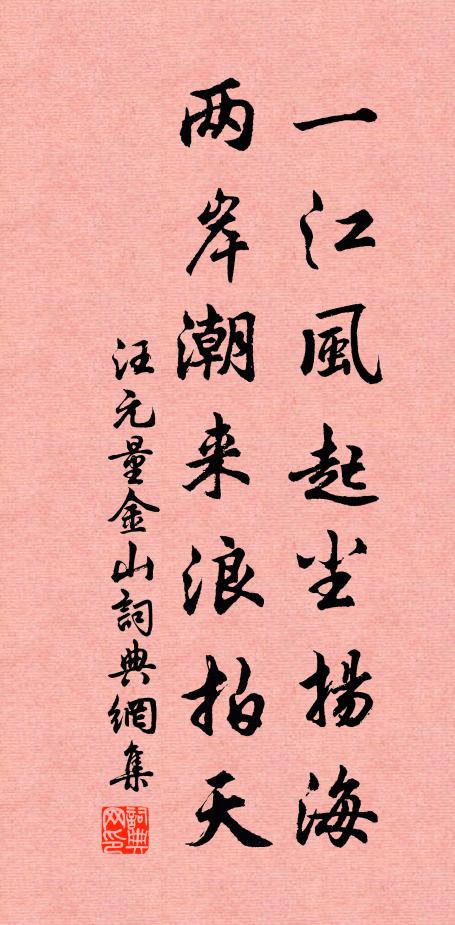 一江風起尘揚海
两岸潮来浪拍天
汪元量金山詞典網集
詞典网印